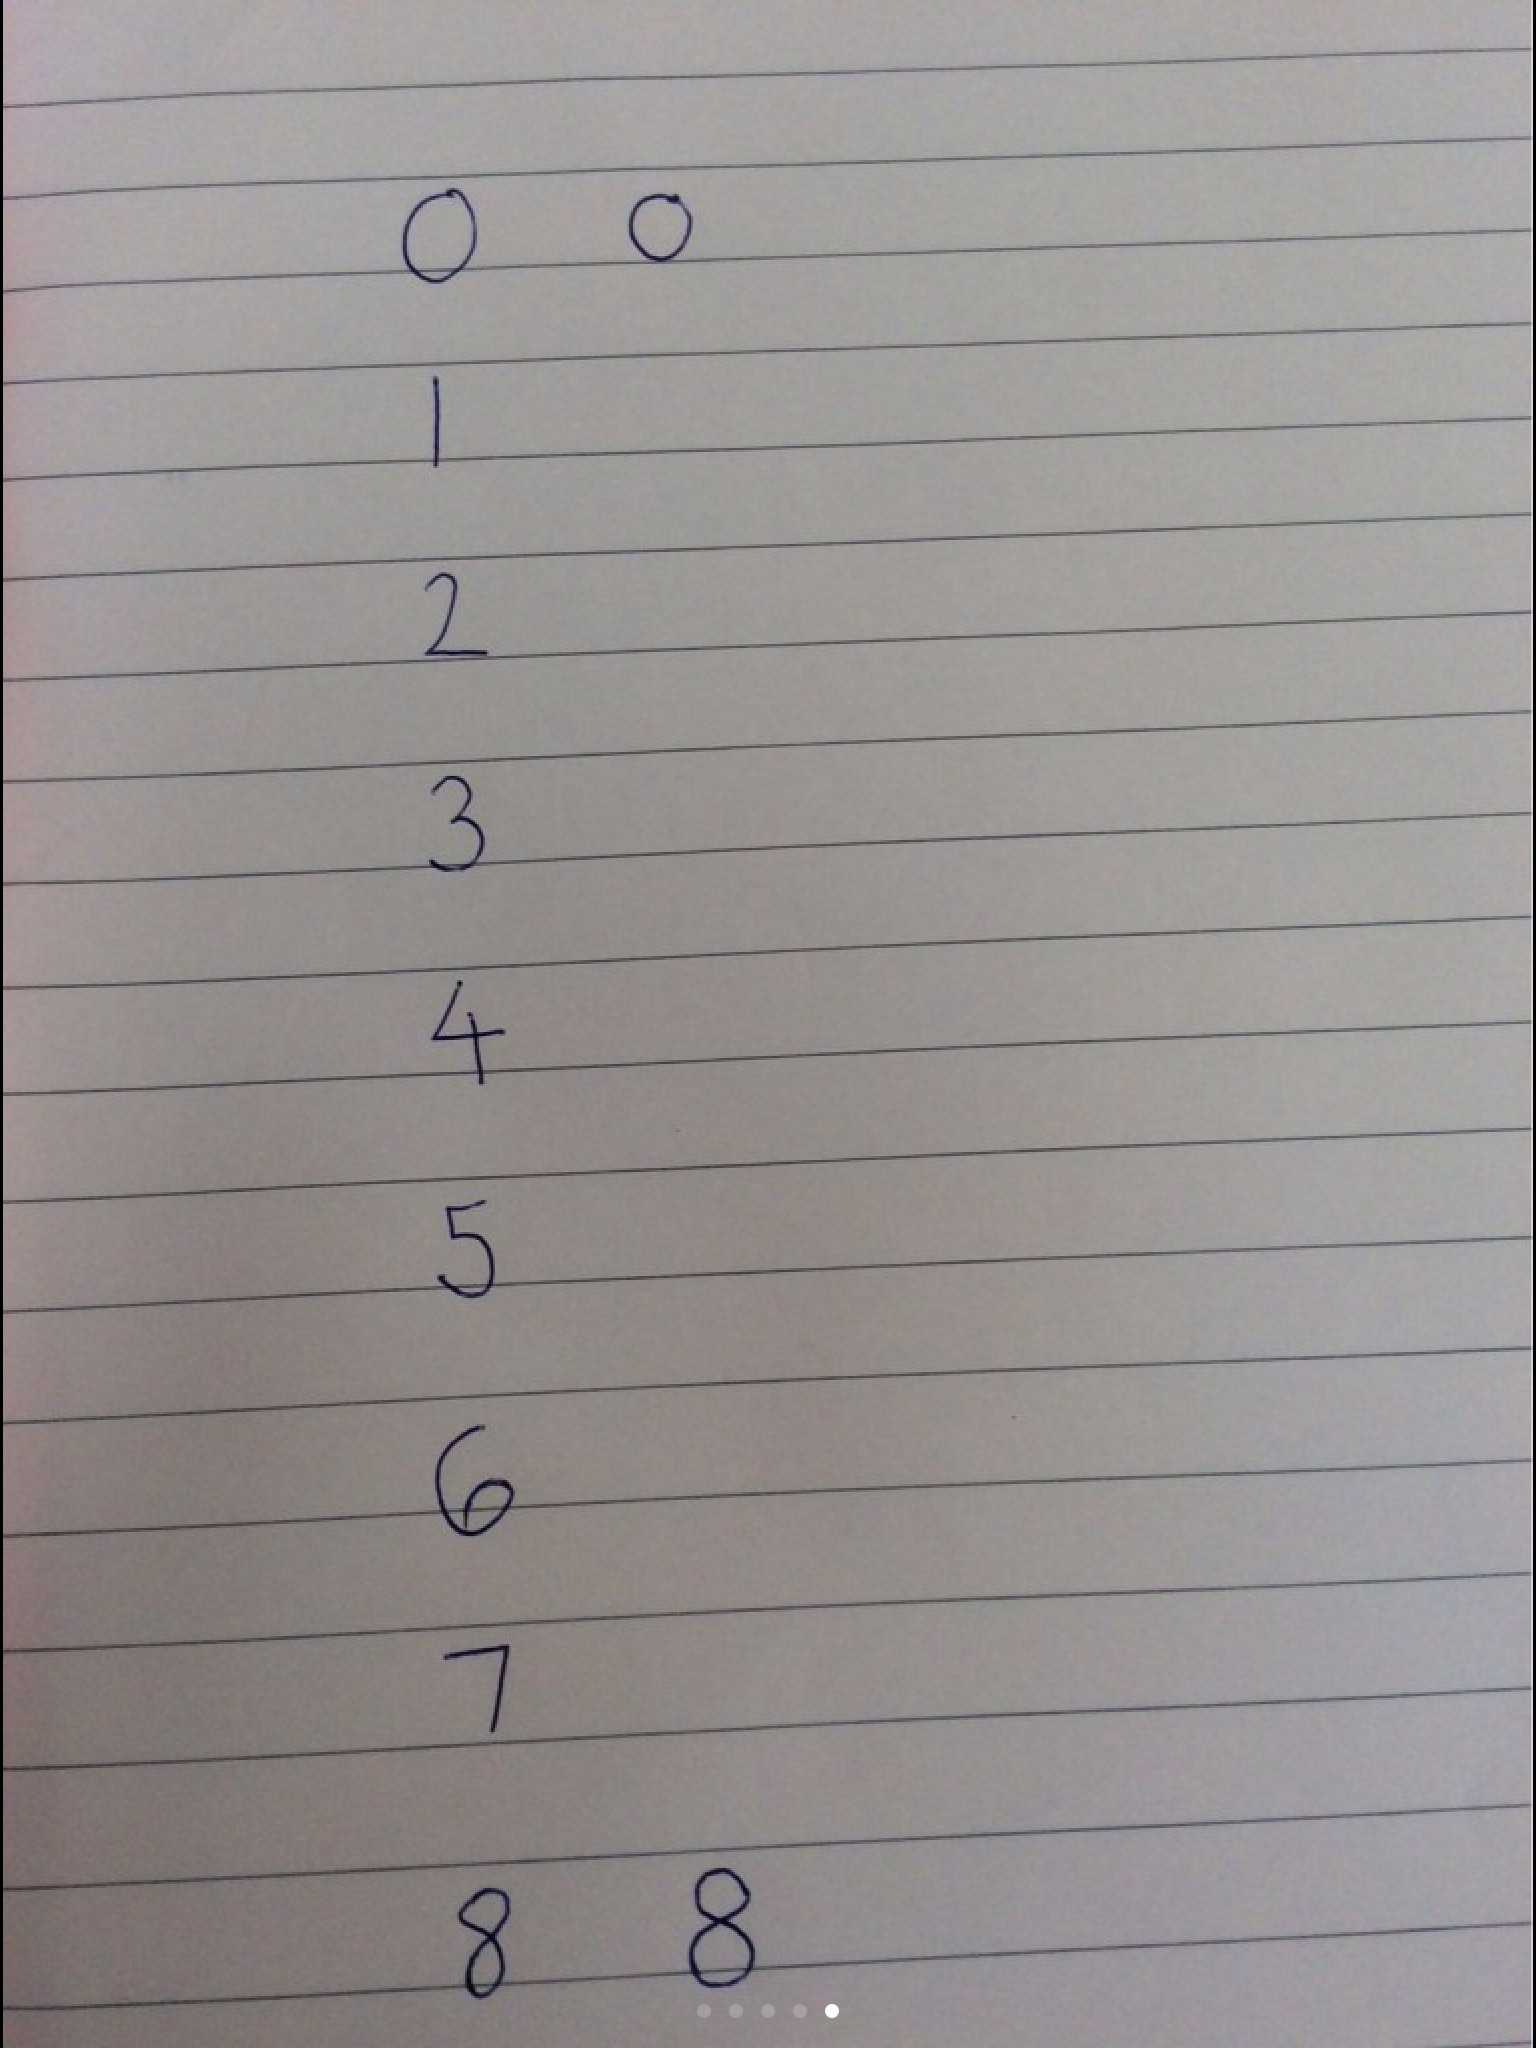 0 0
1
2
3
4
5
6
7
8 8